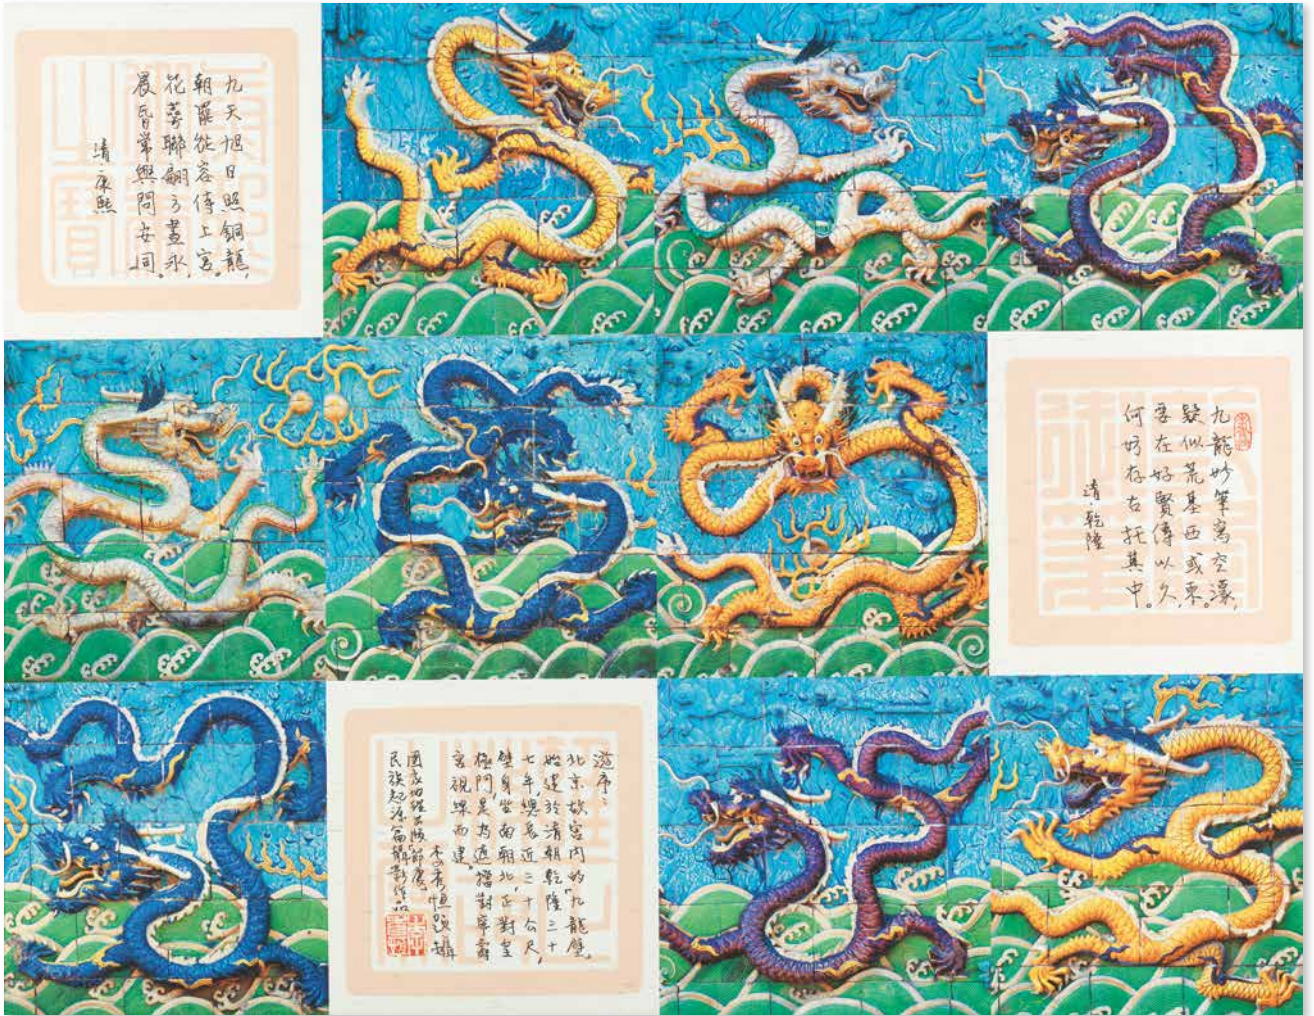 九天旭日照銅龍,
朝罷從容侍上宮。
花萼聯翩方晝永,
晨昏常與問安同。
清 康熙
九龍妙筆寫空濛,
疑似荒基西或東。
要在好賢傳以久,
何妨存古托其中。
清 乾隆
北京故宮内的“九龍壁”
始建於清朝乾隆三十
七年,總長近三十公尺,
壁身坐南朝北,正對皇
極門,是為遮擋對寧壽
宮視線而建。
李秀恒
國家地理出版
民族起源篇攝影作品